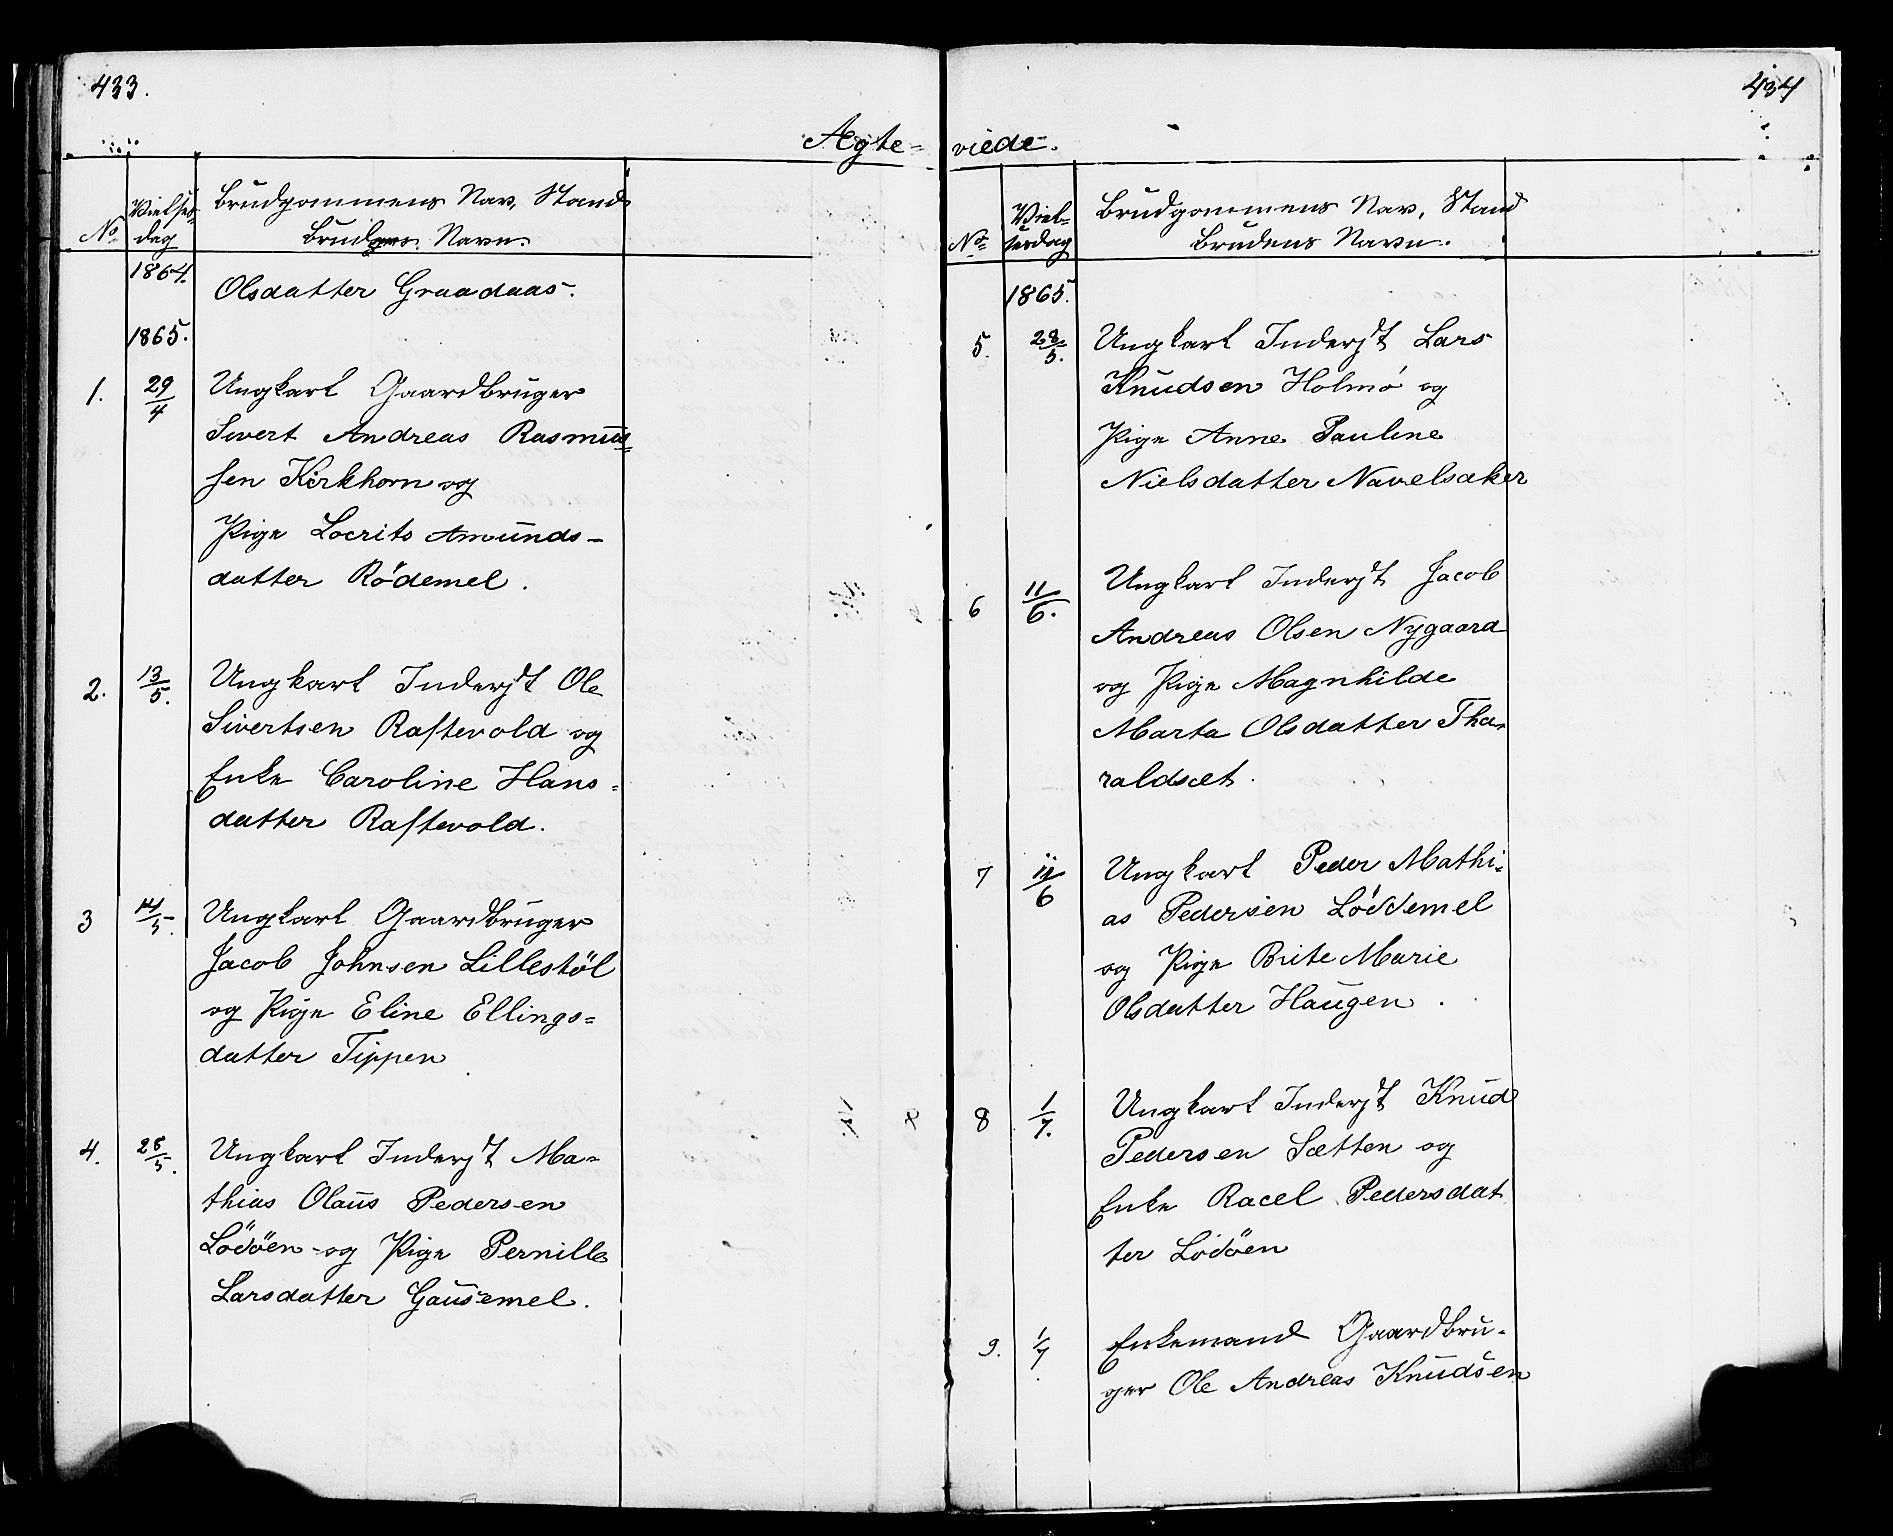 433.
Ægte-
No Vielses-dag Brudgommens Nav, Stand
Brudens Navn.
1864. Olsdatter Graadaas.
1865.
1. 29/4 Ungkarl Gaardbruger
Sivert Andreas Rasmus-
sen Kirkhorn og
Pige Locrits Amunds-
datter Rödemel.
2. 13/5. Ungkarl Inderst Ole
Sivertsen Raftevold og
Enke Caroline Hans-
datter Raftevold.
3 14/5. Ungkarl Gaardbruger
Jacob Johnsen Lillestöl
og Pige Eline Ellings-
datter Tippen
4. 28/5. Ungkarl Inderst Ma-
thias Olaus Pedersen
Lödöen og Pige Pernille
Larsdatter Gausemel.
434
viede.
No Viel-sesdag Brudgommens Nav, Stand
Brudens Navn.
1865.
5. 28/5. Ungkarl Inderst Lars
Knudsen Holmö og
Pige Anne Pauline
Nielsdatter Navelsaker
6 11/6. Ungkarl Inderst Jacob
Andreas Olsen Nygaard
og Pige Magnhilde
Marta Olsdatter Tha-
raldsæt.
7 11/6 Ungkarl Peder Mathi-
as Pedersen Löddemel
og Pige Brite Marie
Olsdatter Haugen.
8 1/7. Ungkarl Inderst Knud
Pedersen Sætten og
Enke Racel Pedersdat
ter Lödöen
9. 1/7 Enkemand Gaardbru-
ger Ole Andreas Knudsen